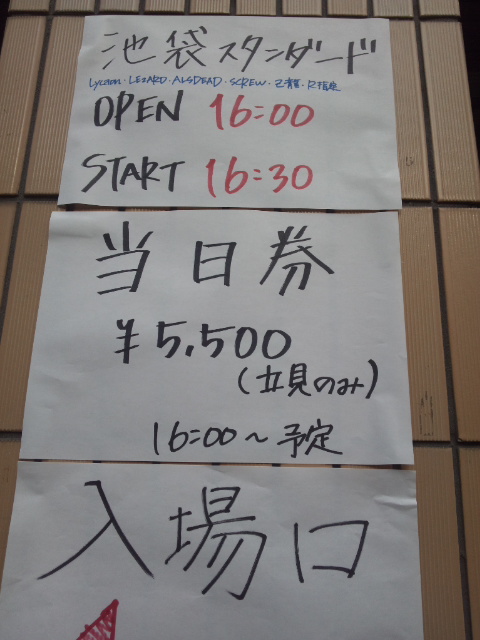 池袋スタンダード
Lycaon・LEZARD・ALSDEAD・SCREW・己龍・R指定
OPEN 16:00
START 16:30
当日券
¥5,500
(立見のみ)
16:00～予定
入場口